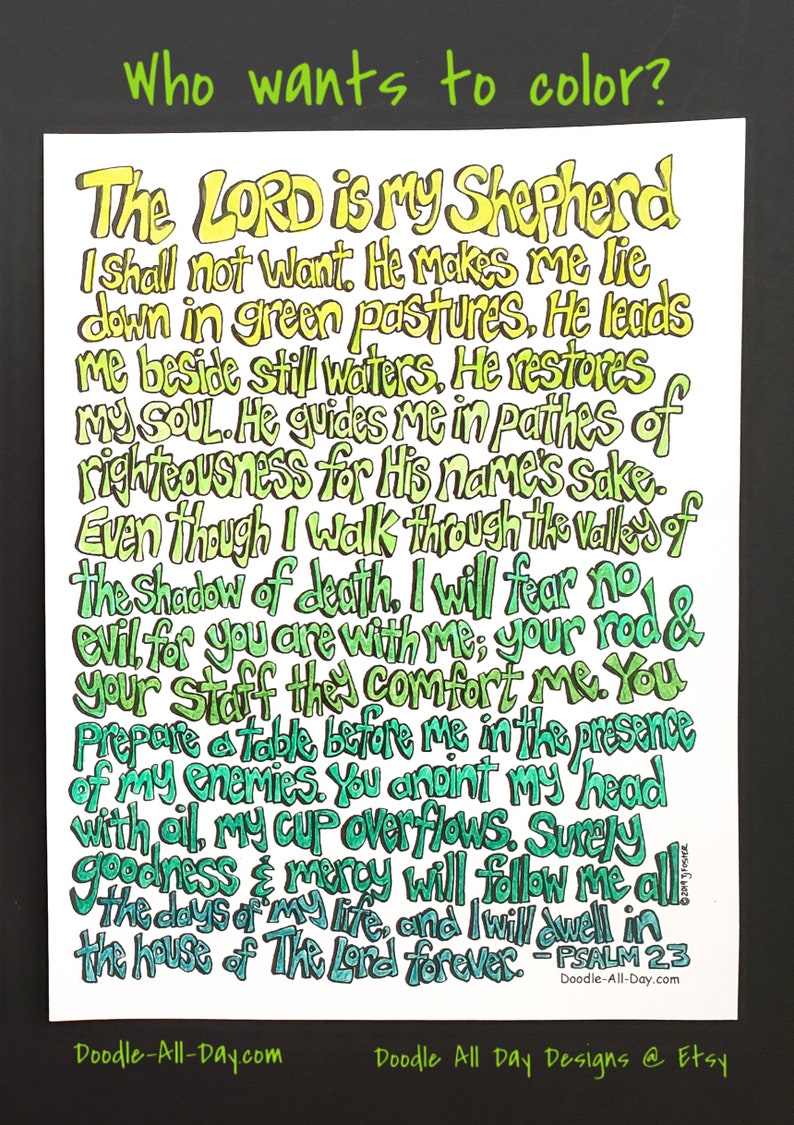 Who wants to color?
The LORD is my Shepherd
I shall not want. He makes me lie
down in green pastures. He leads
me beside still waters. He restores
my soul. He guides me in pathes of
righteousness for His name's sake.
Even though I walk through the valley of
the shadow of death, I will fear no
evil, for you are with me; your rod &
your staff they comfort me. You
prepare a table before me in the presence
of my enemies. You anoint my head
with oil, my cup overflows. Surely
goodness & mercy will follow me all
the days of my life, and I will dwell in
the house of The Lord forever. - PSALM 23
©2019 TJ FOSTER
Doodle-All-Day.com
Doodle-All-Day.com
Doodle All Day Designs @ Etsy